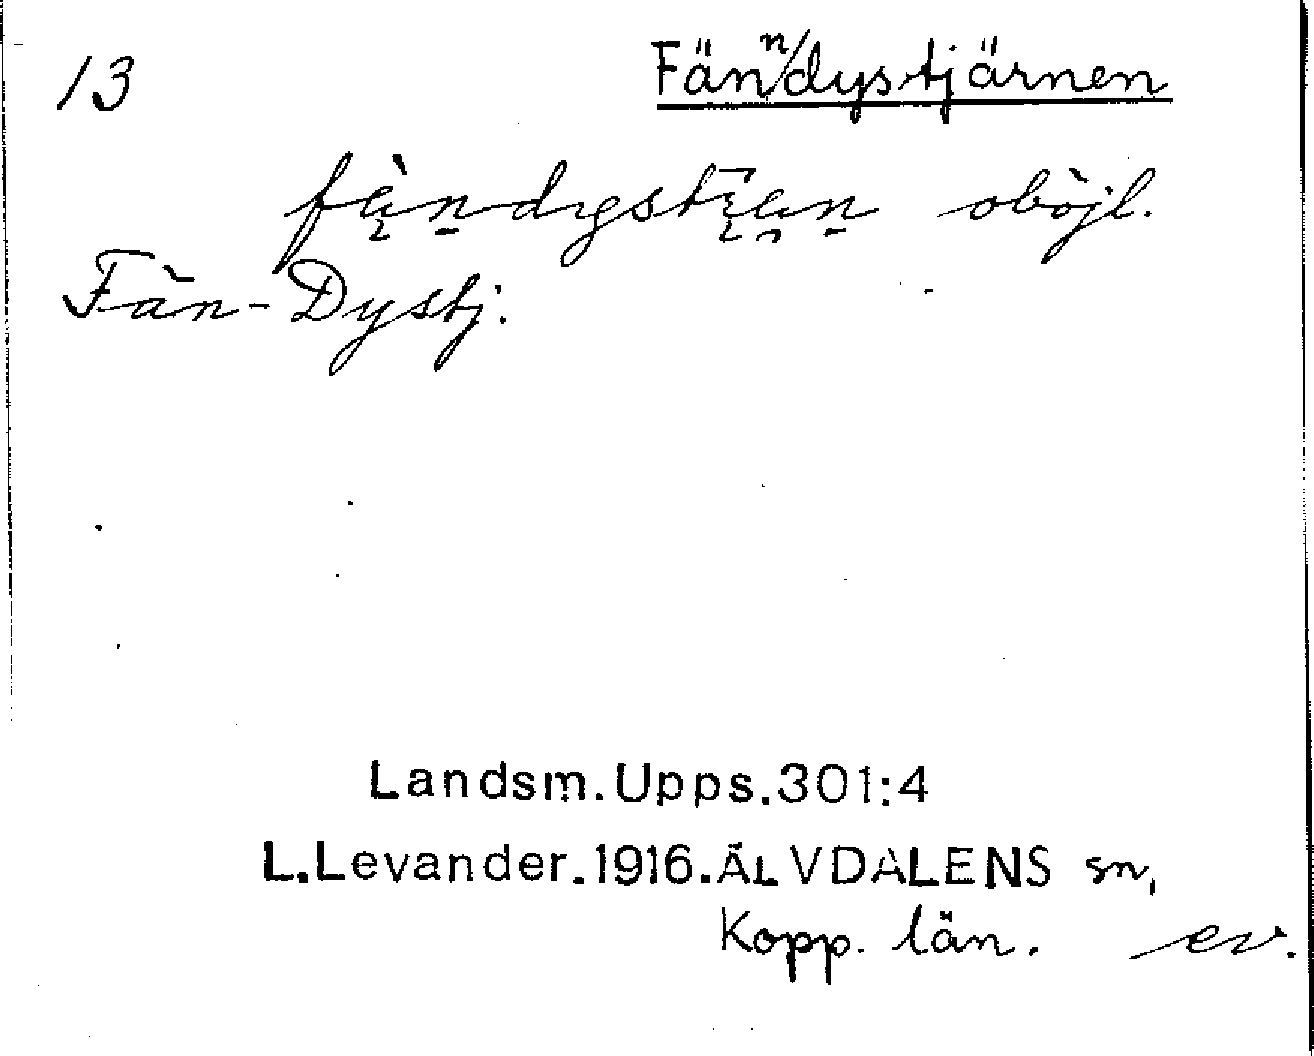 13 Fän/dystjärnen
n
oböjl.
Fän-Dystj.
Landsm.Upps.301:4
L.Levander.1916.ÄLVDALENS sn,
Kopp. län. ev.